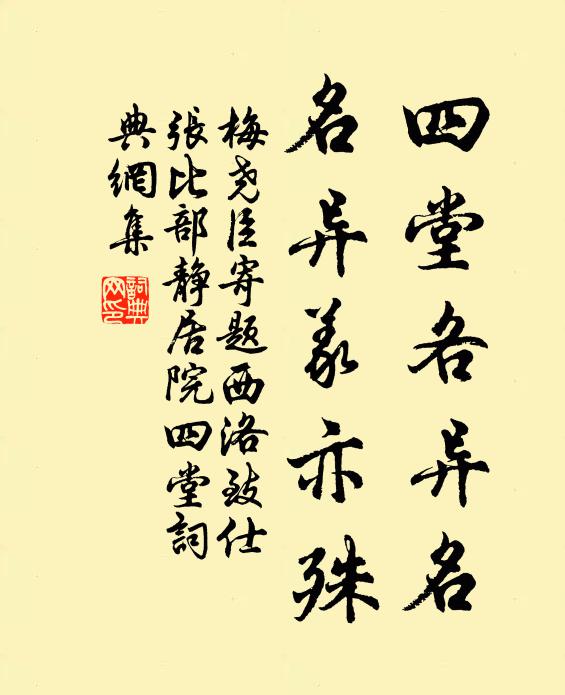 四堂各异名
名异义亦殊
梅尧臣寄题西洛致仕
張比部静居院四堂詞
典網集
詞典網印